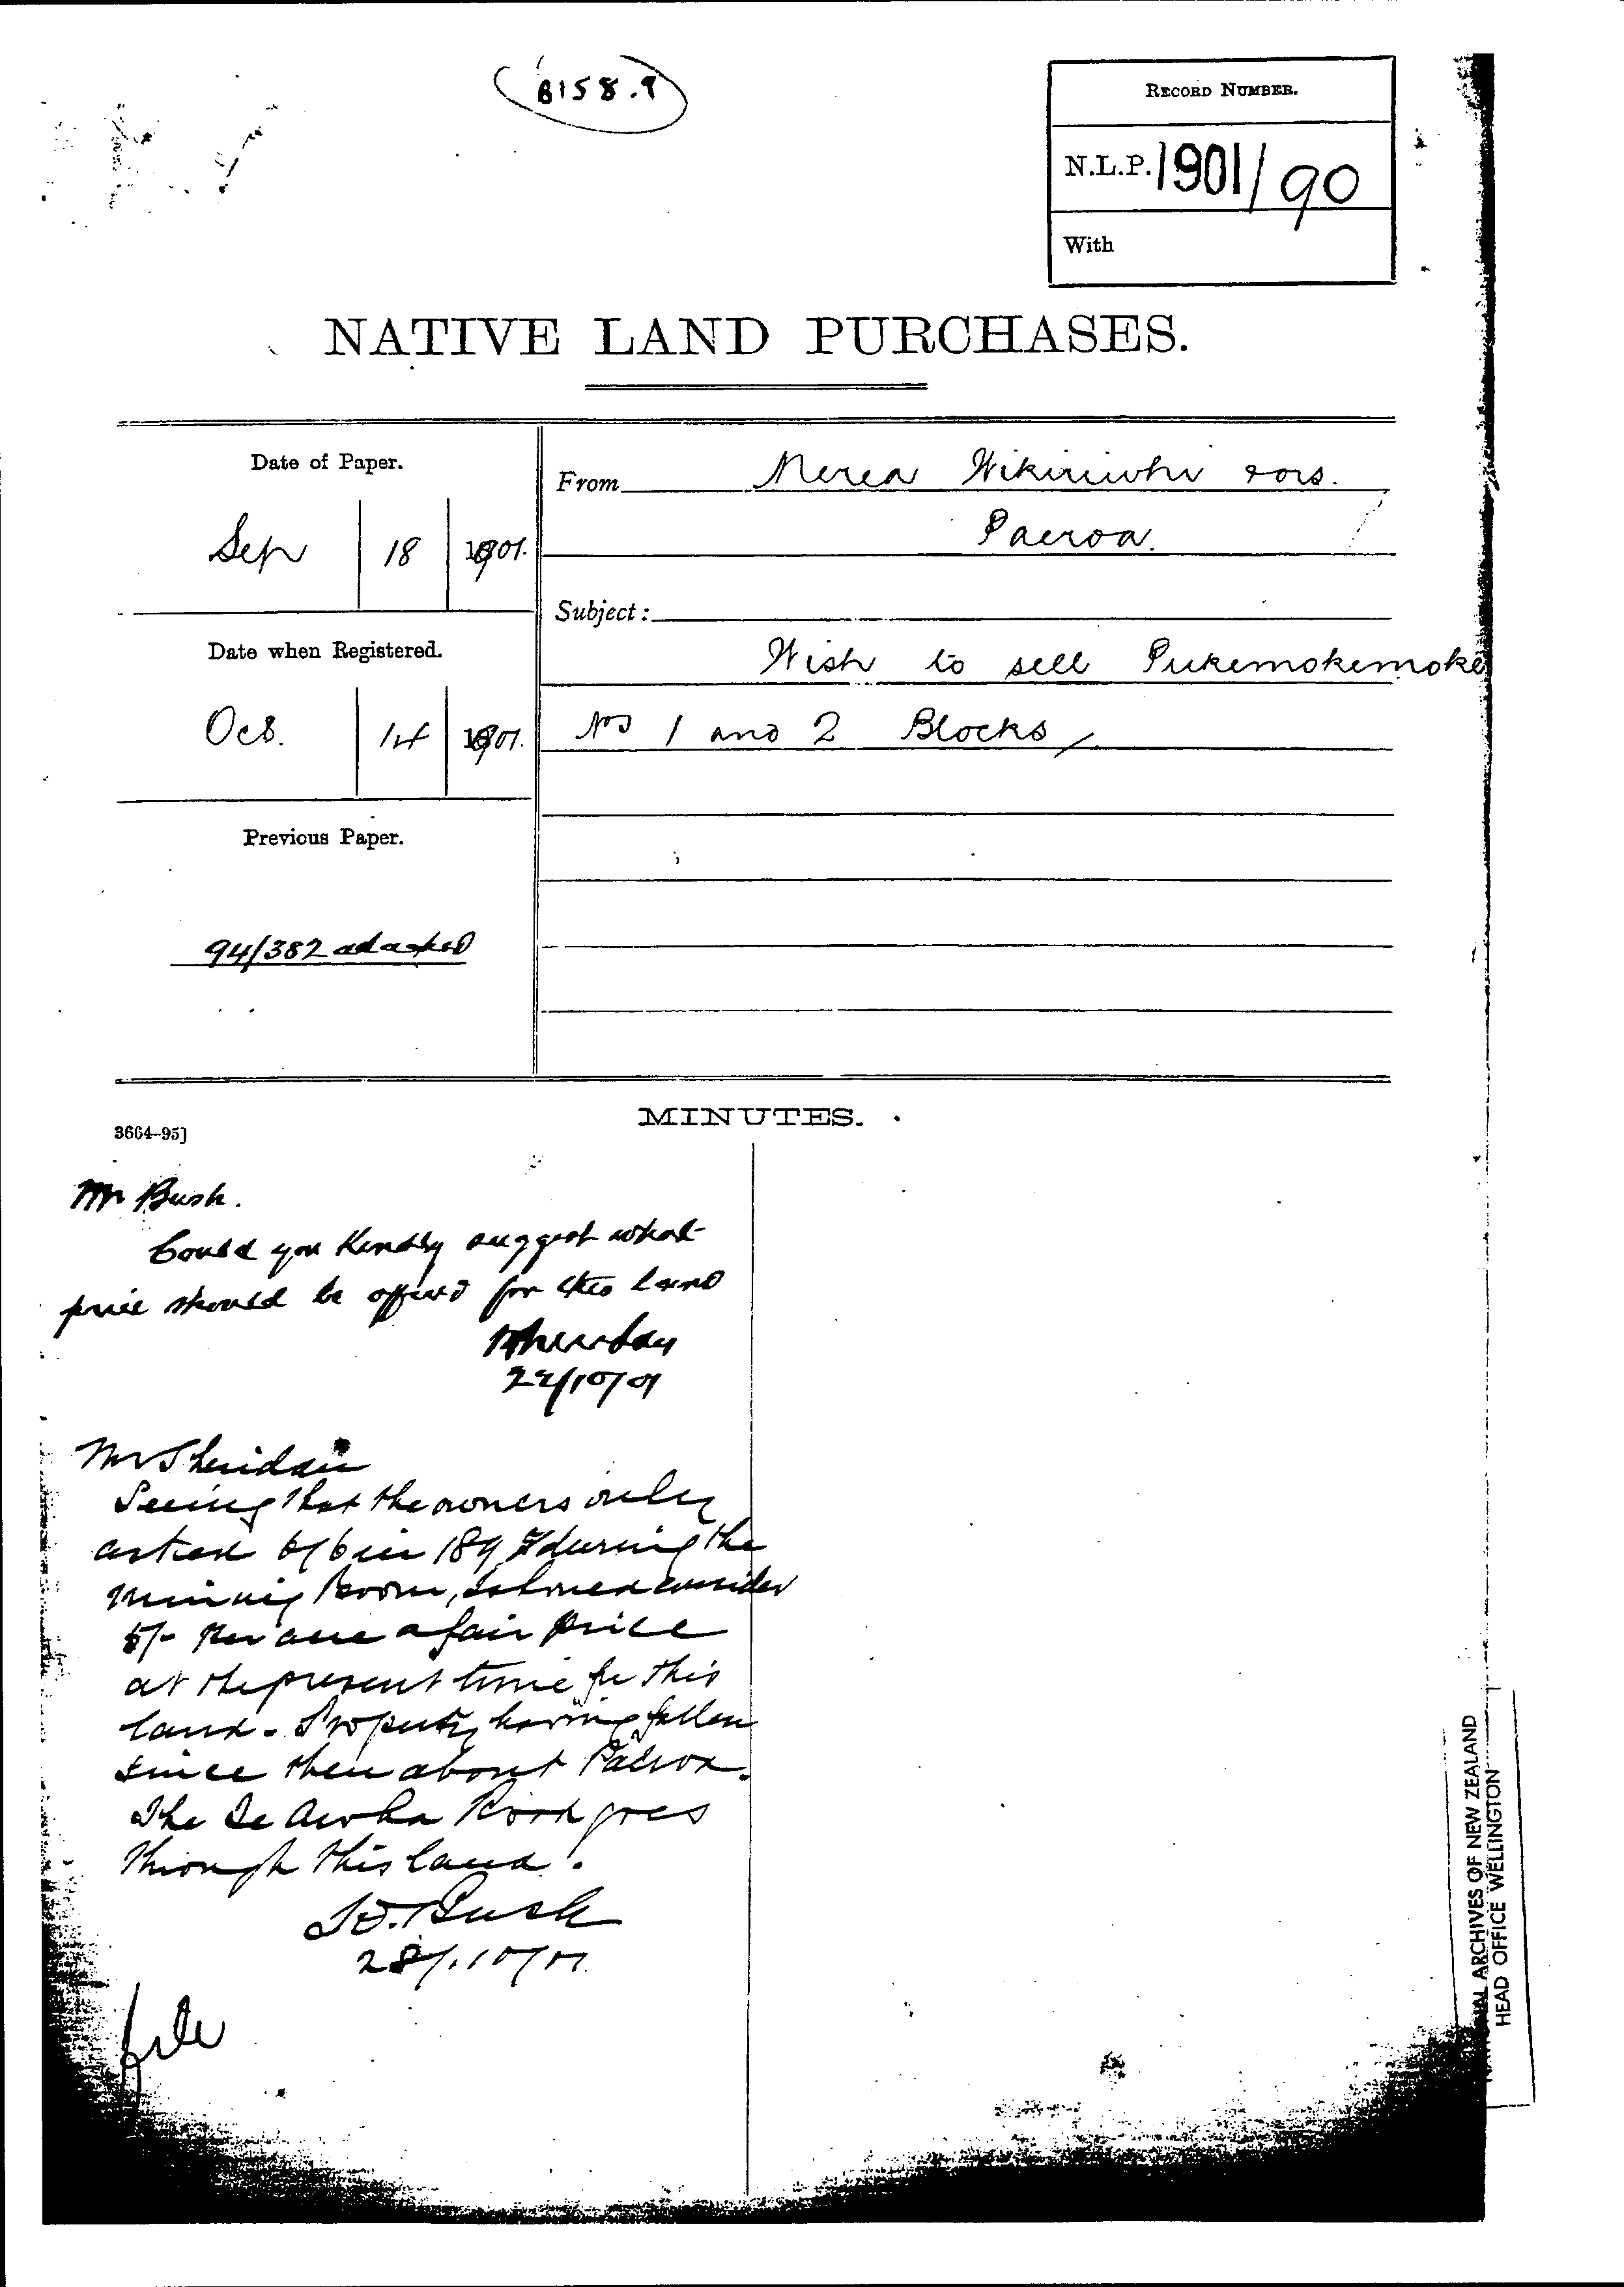 B158.9
RECORD NUMBER.
N.L.P. 1901/90
With
NATIVE LAND PURCHASES.
Date of Paper.
Sep 18 1901.
Date when Registered.
Oct. 14 1901.
Previous Paper.
94/382 attached
From Merea Wikiriwhi & ors.
Paeroa.
Subject:
Wish to sell Pukemokemoke
Nos 1 and 2 Blocks
3664–95]
MINUTES.
Mr Bush.
Could you kindly suggest what
price should be offered for this land
PSheridan
22/10/01
Mr Sheridan
Seeing that the owners only
asked 6/6 in 189 during the
mining boom, I should consider
5/- per acre a fair price
at the present time for this
land. Property having fallen
since then about Paeroa.
The Te Aroha Road goes
through this land.
Bush
28/.10/01
file
NATIONAL ARCHIVES OF NEW ZEALAND
HEAD OFFICE WELLINGTON